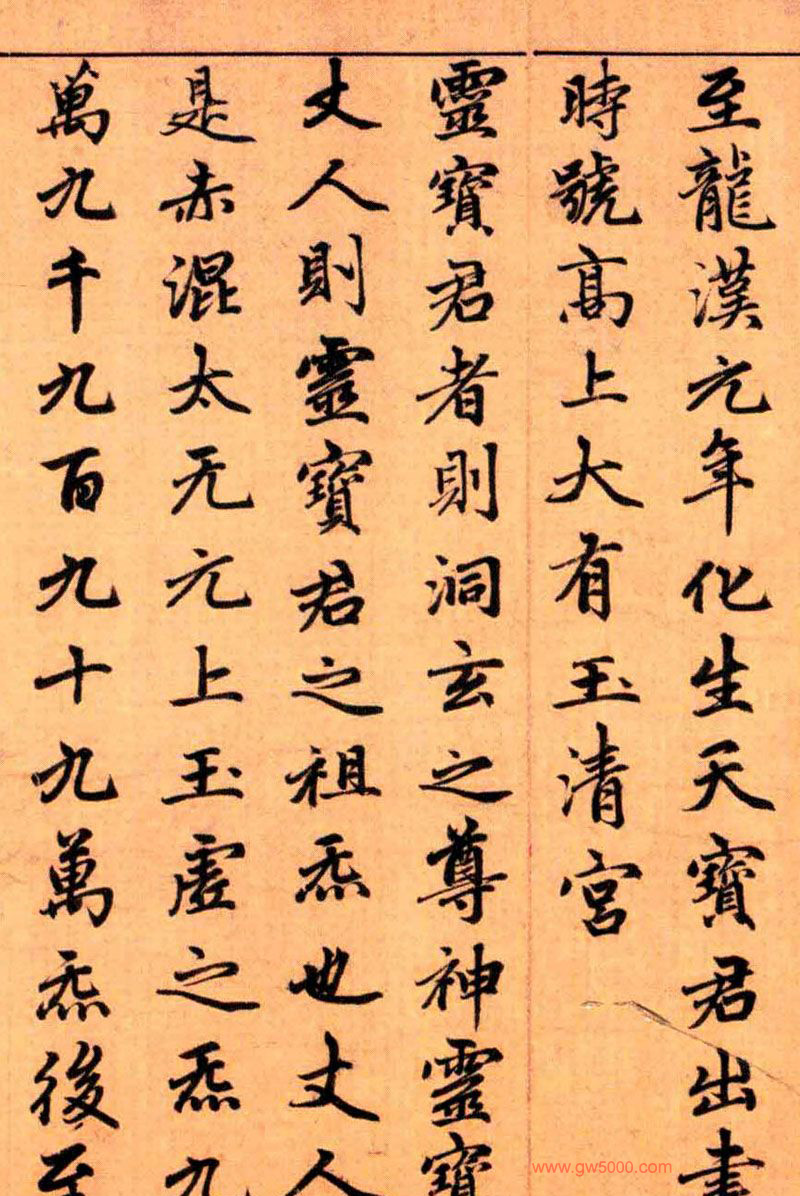 至龍漢元年化生天寶君出書
時號高上大有玉清宮
靈寶君者則洞玄之尊神靈寶
丈人則靈寶君之祖炁也丈人
是赤混太无元上玉虛之炁九
萬九千九百九十九萬炁後至
www.gw5000.com